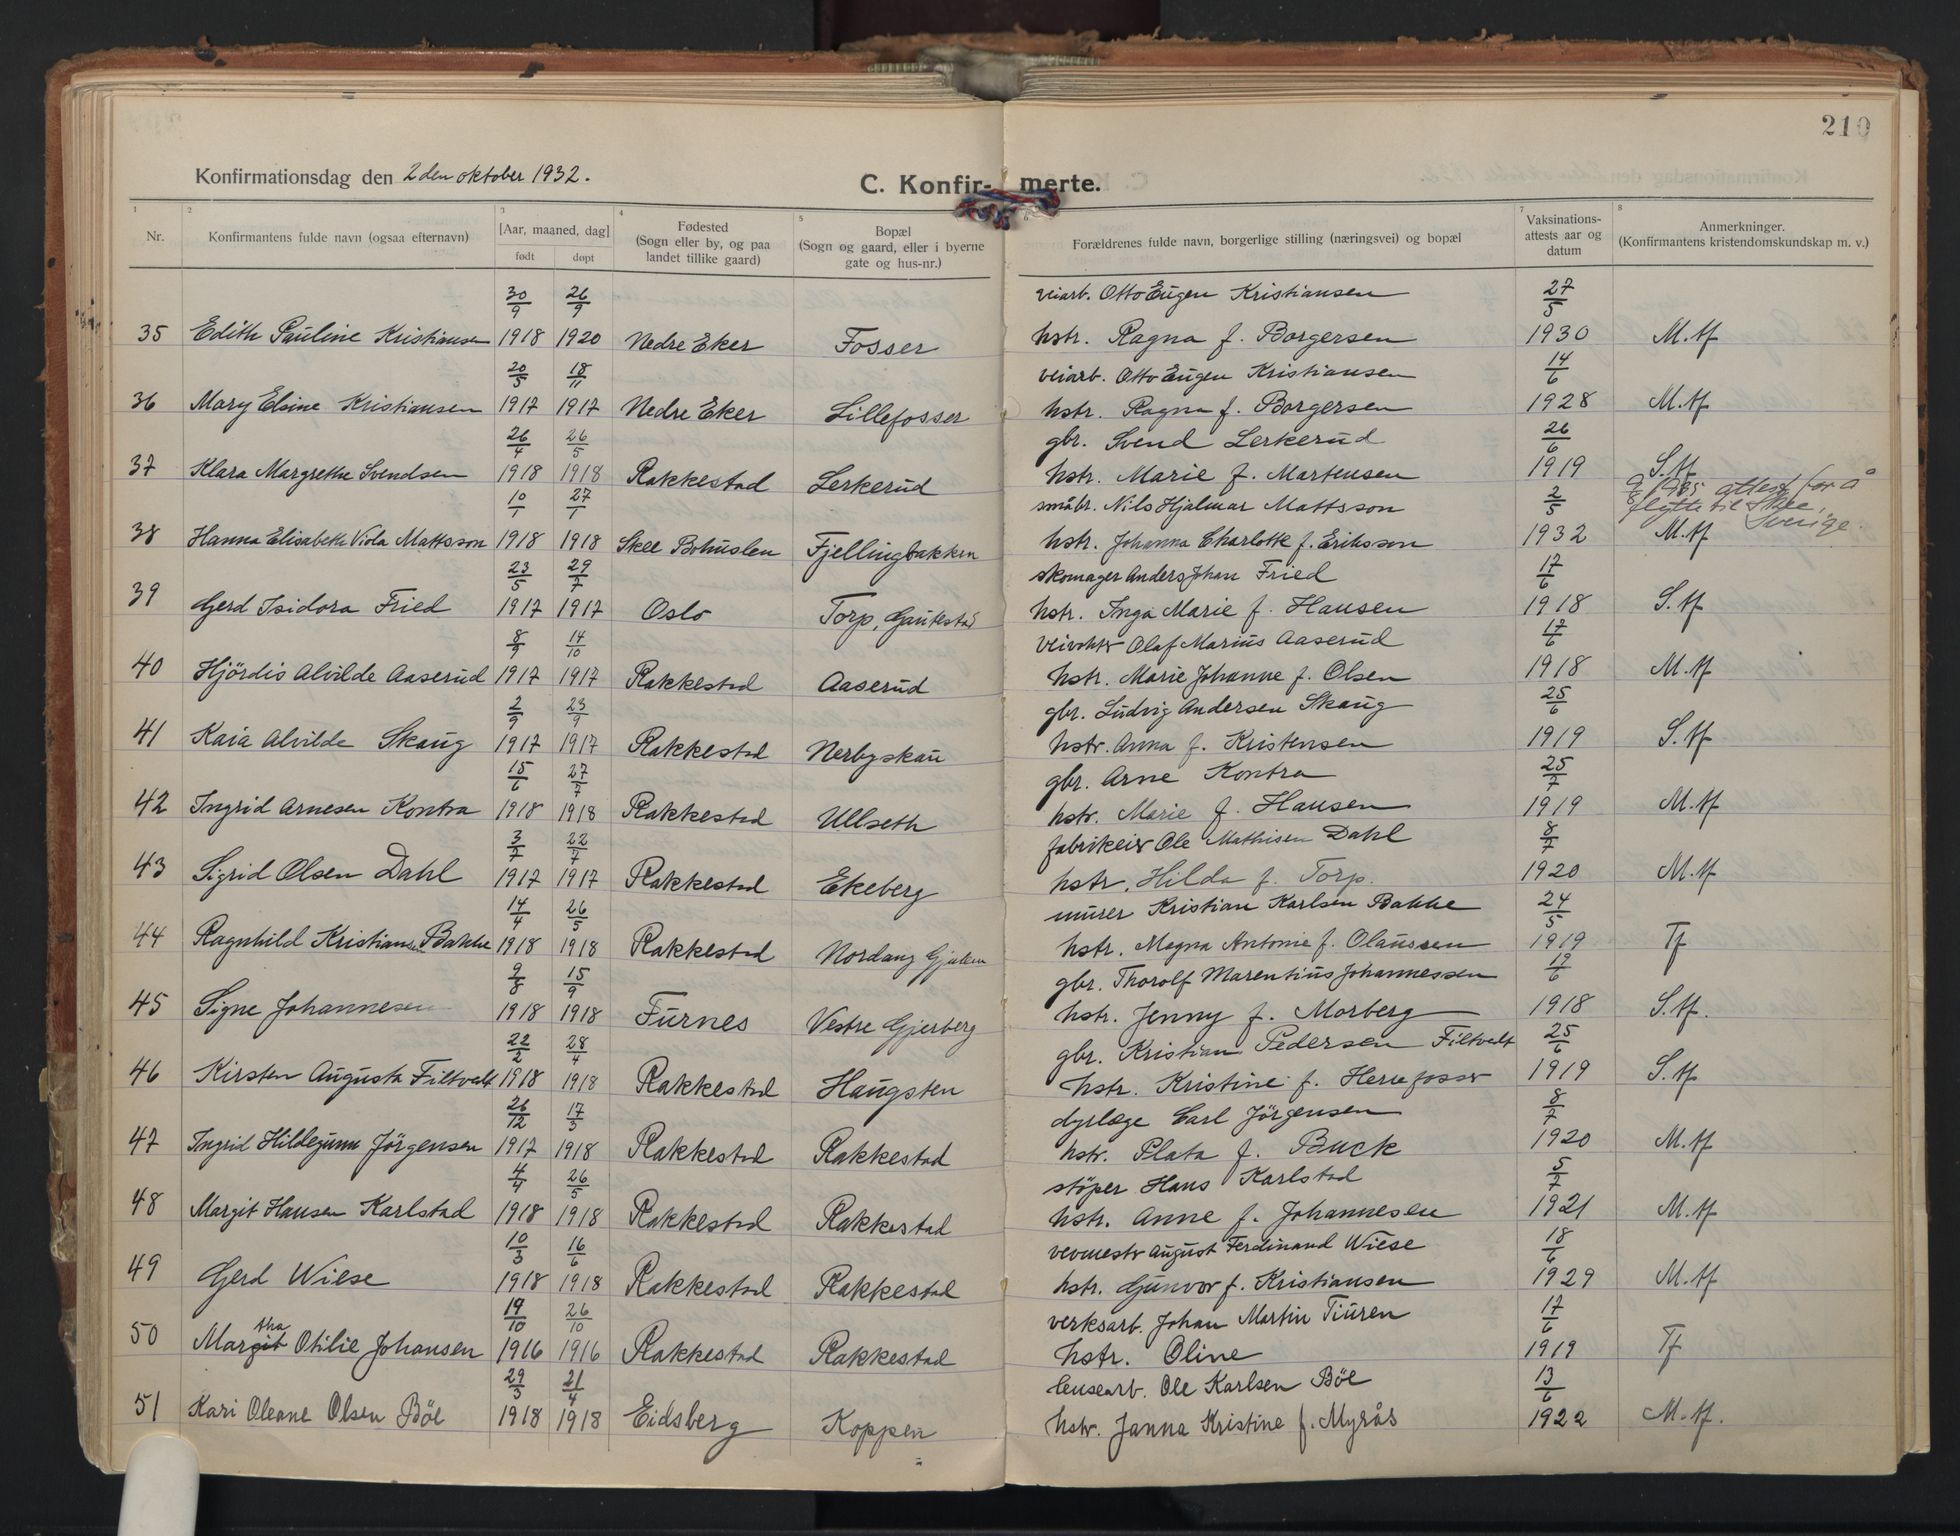 210
Konfirmationsdag den 2den oktober 1932.
C. Konfir- merte.
1 2 3 4 5 6 7 8
Nr. Konfirmantens fulde navn (ogsaa efternavn) [Aar, maaned, dag] født døpt Fødested (Sogn eller by, og paa landet tillike gaard) Bopæl (Sogn og gaard, eller i byerne gate og hus-nr.) Forældrenes fulde navn, borgerlige stilling (næringsvei) og bopæl Vaksinations-attests aar og datum Anmerkninger. (Konfirmantens kristendomskundskap m. v.)
30/9 26/9 veiarb. Otto Eugen Kristiansen 27/5
35 Edith Pauline Kristiansen 1918 1920 Nedre Eker Fosser hstr. Ragna f. Borgersen 1930 M.tf
20/5 18/11 veiarb. Otto Eugen Kristiansen 14/6
36 Mary Elsine Kristiansen 1917 1917 Nedre Eker Lillefosser hstr. Ragna f. Borgersen 1928 M.tf
26/4 26/5 gbr. Svend Lerkerud 26/6
37 Klara Margrethe Svendsen 1918 1918 Rakkestad Lerkerud hstr. Marie f. Martensen 1919 S.tf
10/1 27/1 småbr. Nils Hjalmar Mattsson 2/5 attest for å flytte til Skee, Sverige.
38 Hanna Elisabeth Viola Mattsson 1918 1918 Skee Bohuslen Fjellingbakken hstr. Johanna Charlotte f. Eriksson 1932 M.tf
23/5 29/7 skomager Anders Johan Fried 17/6
39 Gerd Isidora Fried 1917 1917 Oslo Torp, Gautestad hstr. Inga Marie f. Hansen 1918 S.tf
8/9 14/10 veivokter Olaf Marius Aaserud 17/6
40 Hjördis Alvilde Aaserud 1917 1917 Rakkestad Aaserud hstr. Marie Johanne f. Olsen 1918 M.tf
2/9 23/9 gbr. Ludvig Andersen Skaug 25/6
41 Kaia Alvilde Skaug 1917 1917 Rakkestad Nerbyskau hstr. Anna f. Kristensen 1919 S.tf
15/6 27/7 gbr. Arne Kontra 25/7
42 Ingrid Arnesen Kontra 1918 1918 Rakkestad Ullseth hstr. Marie f. Hansen 1919 M.tf
3/7 22/7 fabrikeier Ole Mathisen Dahl 8/7
43 Sigrid Olsen Dahl 1917 1917 Rakkestad Ekeberg hstr. Hilda f. Torp. 1920 M.tf
14/4 26/5 murer Kristian Karlsen Bakke 24/5
44 Ragnhild Kristiansen Bakke 1918 1918 Rakkestad Nordang Gjulem hstr. Magna Antonie f. Olaussen 1919 Tf
9/8 15/9 gbr. Thorolf Marentius Johannessen 19/6
45 Signe Johannesen 1918 1918 Furnes Vestre Gjerberg hstr. Jenny f. Morberg 1918 S.tf.
22/2 28/4 gbr. Kristian Pedersen Filtvedt 25/6
46 Kirsten Augusta Filtvedt 1918 1918 Rakkestad Haugsten hstr. Kristine f. Herrefosser 1919 S.tf
26/12 17/3 dyrlæge Carl Jörgensen 8/7
47 Ingrid Hildegunn Jörgensen 1917 1918 Rakkestad Rakkestad hstr. Plata f. Buck 1920 M.tf
4/4 26/5 stöper Hans Karlstad 5/7
48 Margit Hansen Karlstad 1918 1918 Rakkestad Rakkestad hstr. Anne f. Johannesen 1921 M.tf
10/3 16/6 August Ferdinand Wiese 18/6
49 Gerd Wiese 1918 1918 Rakkestad Rakkestad hstr. Gunvor f. Kristiansen 1929 M.tf
19/10 26/10 verksarb. Johan Martin Tiuren 17/6
tha
50 Margit Otilie Johansen 1916 1916 Rakkestad Rakkestad hstr. Oline 1919 Tf
29/3 21/4 lensearb. Ole Karlsen Böe 13/6
51 Kari Oleane Olsen Böe 1918 1918 Eidsberg Koppen hstr. Janna Kristine f. Myrås 1922 M.tf.